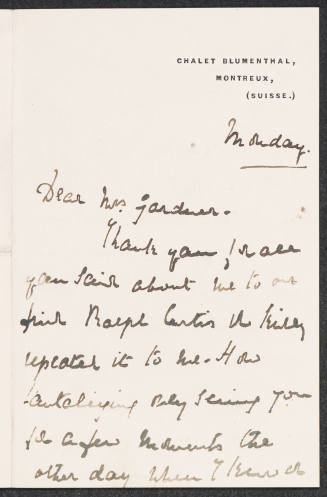 CHALET BLUMENTHAL,
MONTREUX,
(SUISSE.)
Monday.
Dear Mrs. Gardner.
Thank you for all
you said about me to our
friend Ralph Curtis who kindly
repeated it to me. How
tantalizing only seeing you
for a few moments the
other day when I